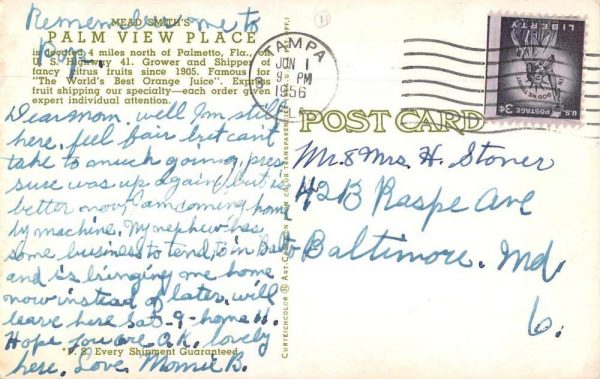 Remember me to
Roye.
MEAD SMITH'S
PALM VIEW PLACE
is located 4 miles north of Palmetto, Fla., on
U. S. Highway 41. Grower and Shipper
fancy citrus fruits since 1905. Famous for
"The World's Best Orange Juice". Express
fruit shipping our specialty—each order given
expert individual attention.
Dear mom. well Im still
here, feel fair but cant
take to much going, pres
sure was up again, but is
better now, am coming home
by machine. My nephew has
some business to tend to in Balto
and is bringing me home
now instead of later. will
leave here Sat-9-home 11.
Hope you are O.K. lovely
here. Love Momie B.
P. S. Every Shipment Guaranteed.
CURTEICHCOLOR ART-CREATION FROM COLOR TRANSPARENCIES
TAMPA
JUN 1
9 PM
1956
FLA
LIBERTY
IN GOD WE TRUST
U.S. POSTAGE 3¢
POST CARD
Mr. & Mrs. H. Stoner
4213 Raspe Ave
Baltimore. Md.
6.